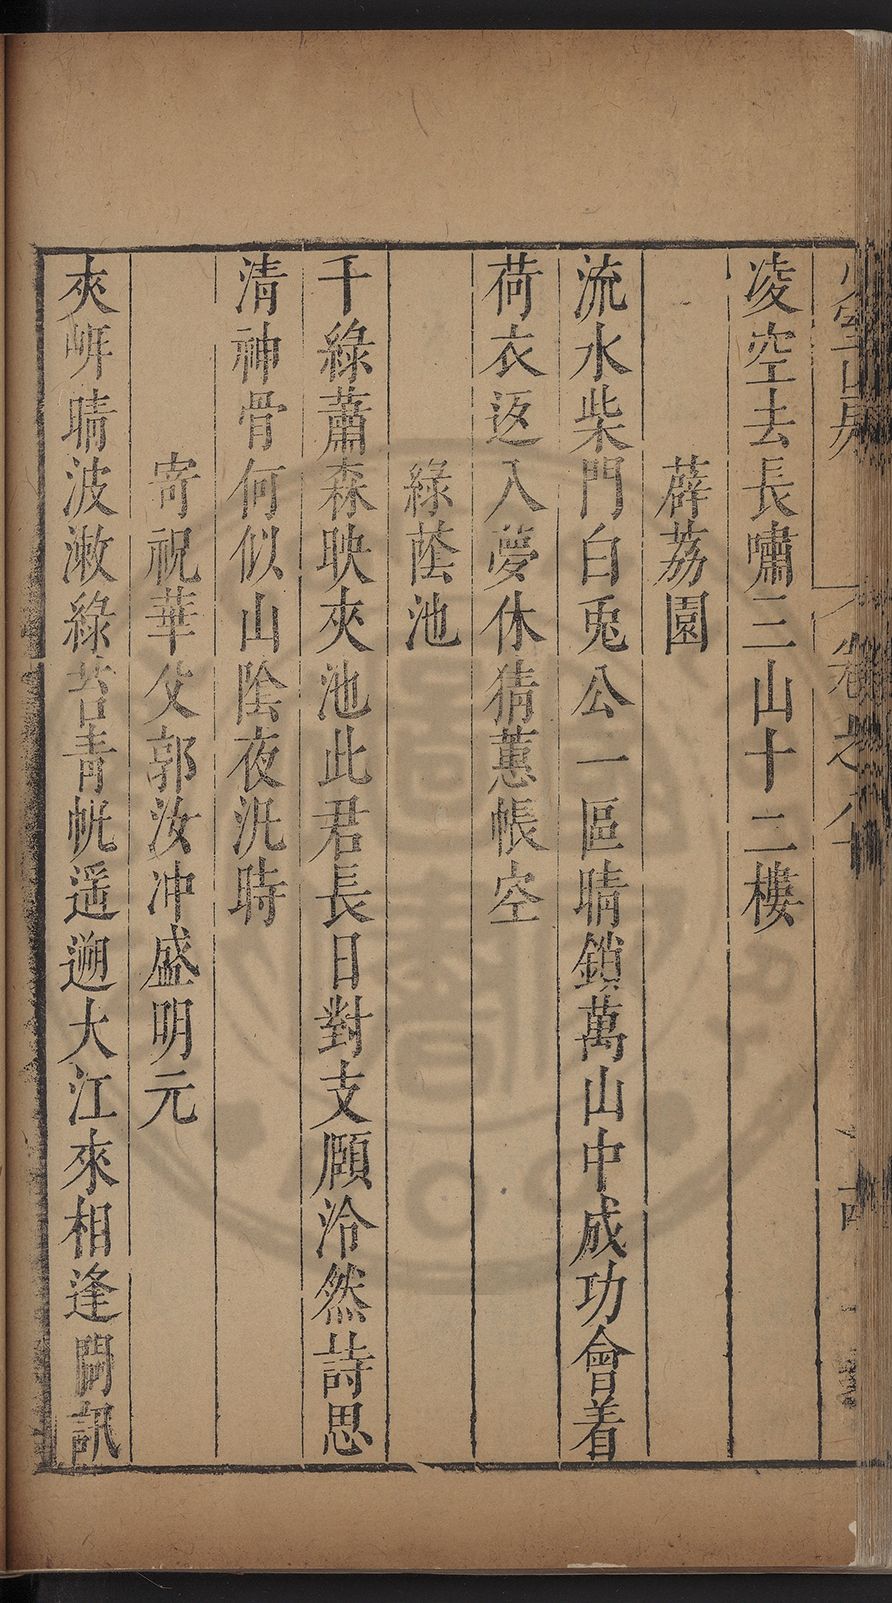 卷之八
凌空去長嘯三山十二樓
薜荔園
流水柴門白兎公一區晴鎖萬山中成功會着
荷衣返入夢休猜蕙帳空
綠蔭池
千綠蕭森映夾池此君長日對支頤泠然詩思
清神骨何似山陰夜汎時
寄祝華父郭汝冲盛明元
夾㟁晴波漱綠苔青帆遥遡大江來相逢問訊